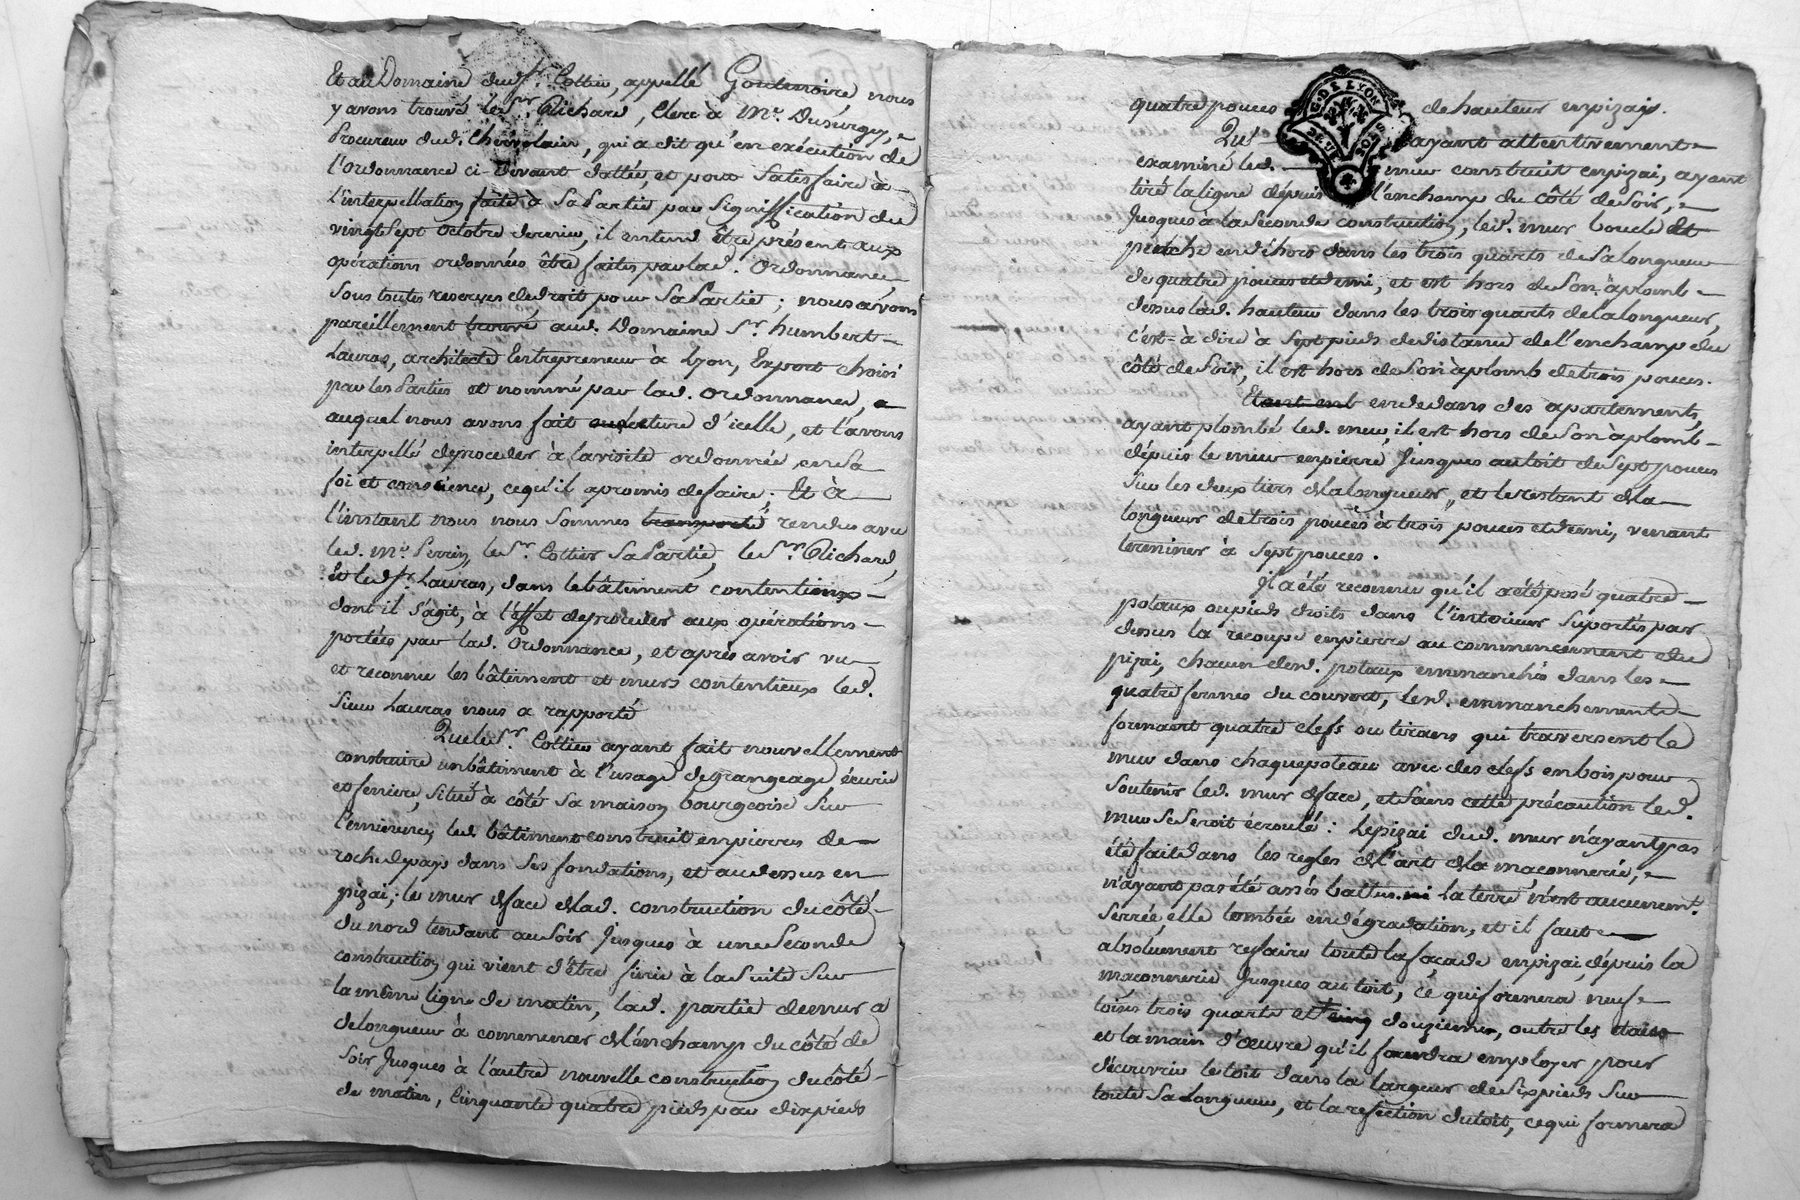 Et au Domaine dud. Sr. Cottier appellé Goutenoire nous
y avons trouvé led. Sr. Richard, Clerc à Me. Dusurgey,
Procureur dud. Chervolain, qui a dit qu'en exécution de
l'Ordonnance ci-devant dattée, et pour satisfaire à
l'interpellation faite à sa Partie par signiffication du
vingt sept octobre dernier, il entend être présent aux
opérations ordonnées être faites par lad. Ordonnance,
sous toutes reserves de droit pour sa Partie; nous avons
pareillement trouvé aud. Domaine Sr. humbert
Lauras, architecte Entrepreneur à Lyon, Expert choisi
par les Parties et nommé par lad. ordonnance,
auquel nous avons fait lecture d'icelle, et l'avons
interpellé de proceder à la visite ordonnée, en sa
foi et conscience, ce qu'il a promis de faire. Et à
l'instant nous nous sommes transporté rendus avec
led. Me. Perrin, le Sr. Cottier sa Partie, le Sr. Richard,
Et led. Sr. Lauras, dans le bâtiment contentieux
dont il s'agit, à l'effet de proceder aux opérations
portées par lad. Ordonnance, et après avoir vu
et reconnu les bâtiment et murs contentieux led.
Sieur Lauras nous a rapporté
Que led. Sr. Cottier ayant fait nouvellement
construire un bâtiment à l'usage de grangeage, écurie
et feniere, situé à côté sa maison bourgeoise sur
l'eminence, led. bâtiment construit en pierres de
roche du pays dans ses fondations, et au dessus en
pizai; le mur de face de lad. construction du côté
du nord tendant au soir jusques à une seconde
construction qui vient d'être finie à la suite sur
la même ligne de matin, lad. partie de mur a
de longueur à commencer de l'enchamp du côté de
soir jusques à l'autre nouvelle construction du côté
de matin, Cinquante quatre pieds par dix pieds
quatre pouces de hauteur en pizay.
G. DE LYON
DEUX SOLS
Qu'ayant attentivement
examiné led. mur construit en pizai, ayant
tiré la ligne dépuis l'enchamp du côté de soir,
jusques à la seconde construction, led. mur boucle et
penche en déhors dans les trois quarts de sa longueur
de quatre pouces et demi, et est hors de son aplomb
dessus lad. hauteur dans les trois quarts de la longueur,
c'est-à-dire à sept pieds de distance de l'enchamp du
côté de soir, il est hors de son àplomb de trois pouces.
Et en dedans des apartements,
ayant plombé led. mur, il est hors de son àplomb
dépuis le mur en pierre jusques au toit de sept pouces
sur les deux tiers de la longueur, et le restant de la
longueur de trois pouces à trois pouces et demi, venant
terminer à sept pouces.
Il a été reconnu qu'il a été posé quatre
potaux ou pieds droits dans l'interieur suportés par
dessus la recoupe en pierre au commencement du
pizai, chacun desd. potaux emmanchés dans les
quatre fermes du couvert, lesd. emmanchements
formant quatre clefs ou tirans qui traversent le
mur dans chaque poteau avec des clefs en bois pour
soutenir led. mur de face, et sans cette précaution led.
mur se seroit écroulé: Le pizai dud. mur n'ayant pas
été fait dans les regles de l'art de la maconnerie,
n'ayant pas été assés battu, ni la terre n'est aucunement
serrée, elle tombe en dégradation, et il faut
absolument refaire toute la façade en pizai, dépuis la
maconnerie jusques au toit, ce qui formera neuf
toises trois quarts et cinq douziemes, outre les etaies
et la main d'oeuvre qu'il faudra employer pour
découvrir le toit dans la largeur de six pieds sur
toute sa longueur, et la refection du toit, ce qui formera